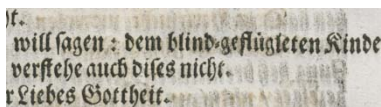 ht.
will ſagen: dem blind-geflügleten Kinde
verſtehe auch diſes nicht.
r Liebes Gottheit.